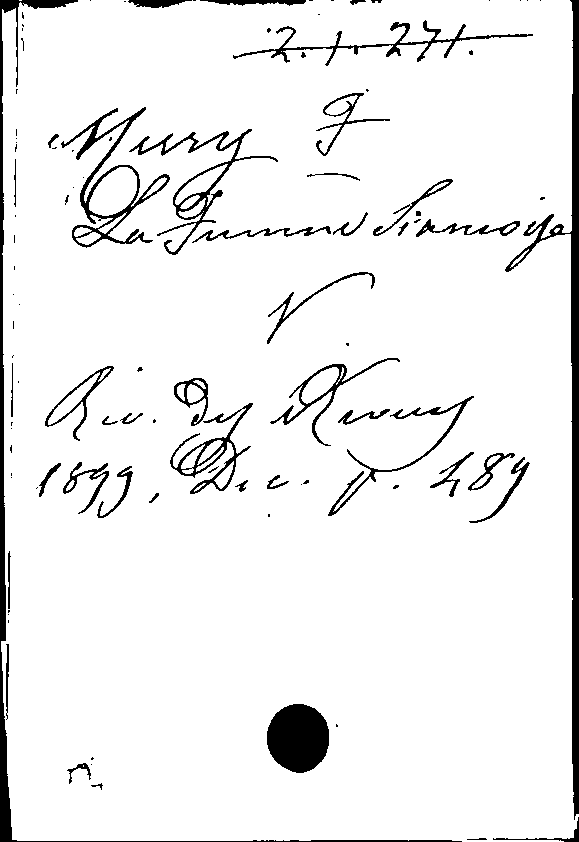 2.1.271.
Mury F
La Femme Siamoise
Rev. des Revues
1899, Dec. p. 489